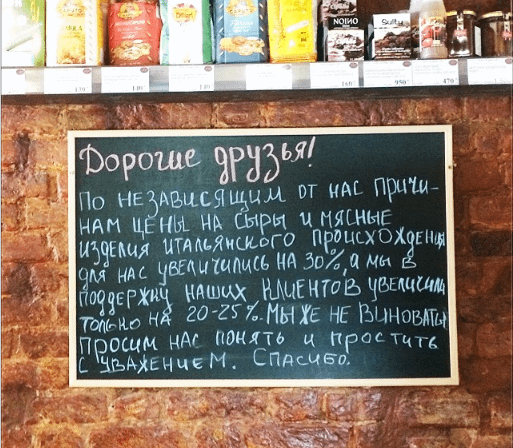 Дорогие друзья!
По независящим от нас причи-
нам цены на сыры и мясные
изделия итальянского происхождения
для нас увеличились на 30%, а мы в
поддержку наших клиентов увеличили
только на 20-25%. Мы же не виноваты
Просим нас понять и простить
с уважением. Спасибо.